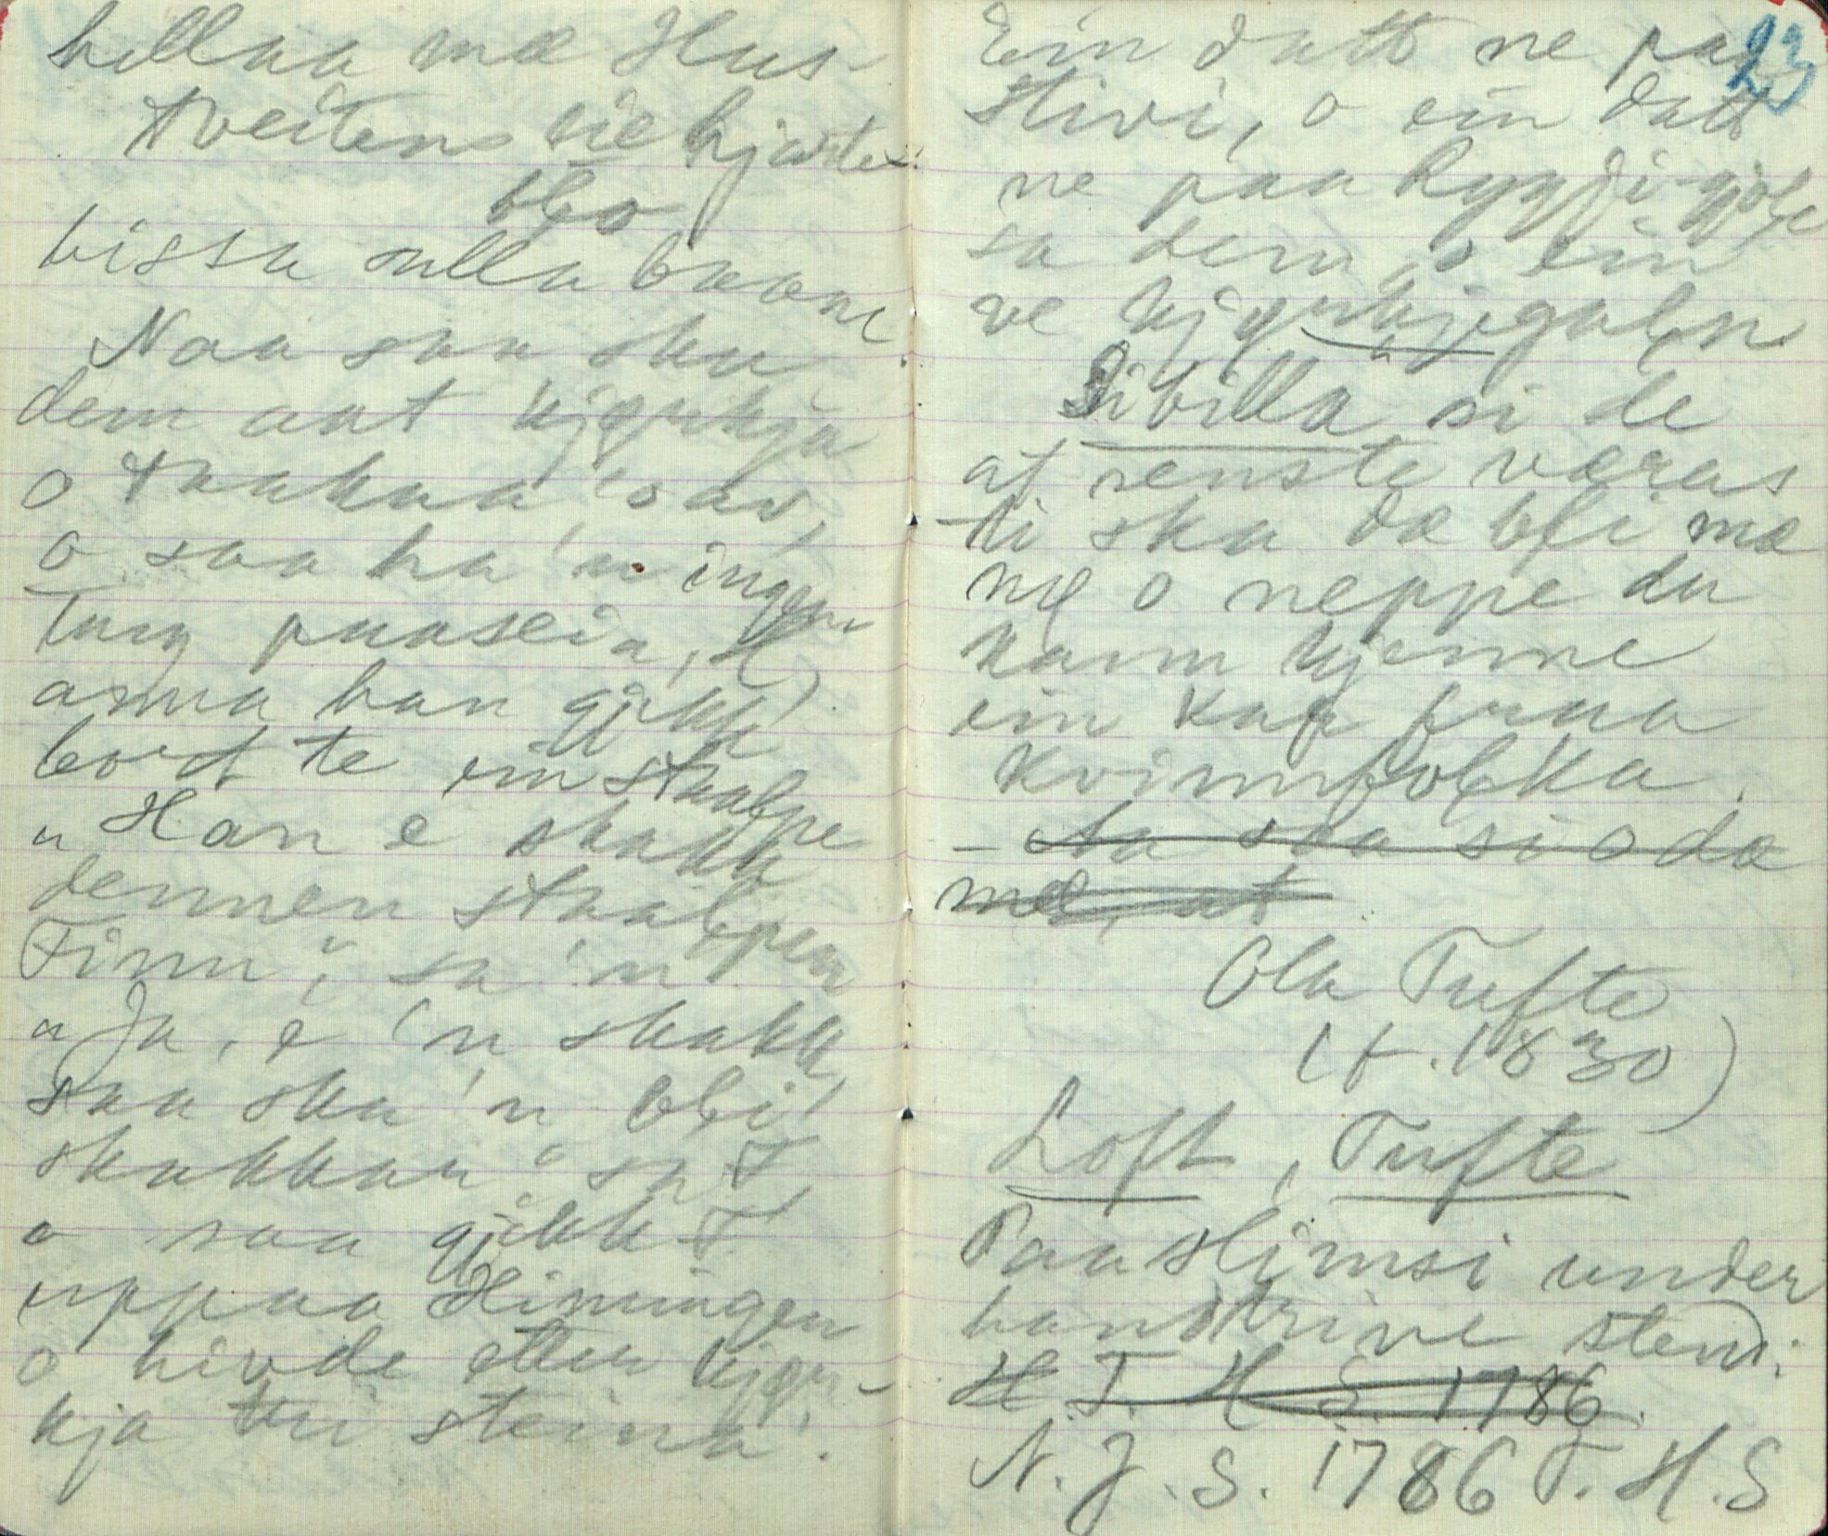 hellaa mæ Hus-
tveitens sie hjarte-
blo
bissa sulla baane.
Naa saa sku
dem aat kjyrkja
o taakaa 'o av,
o saa ha 'n ingen
ting paasei,
anna han gjikk
bort te ein staalpe
"Han e skakk
dennen staalpen
Finn", sa 'n
"Ja, e 'n skakk
saa ska 'n bli
skakkar" sa F
o saa gjikk F
uppaa Himingen
o hivde etter kjyr-
kja tri steina.
23
Ein datt ne paa
Stivi, o ein datt
ne paa Ryggji
sa dem, o ein
ve kjyrkjegaln.
Sibilla si de
at senste væras
ti ska dæ bli mæ
næ o neppe du
kann kjenne
ein kar fraa
kvinnfolka.
- Aa saa si o dæ
mæ, at
Ola Tufte
(f. 1830)
Loft, Tufte
Paa slimsi under
handkrive stend:
H T. H S. 1786.
N. J. S. 1786 T. H. S